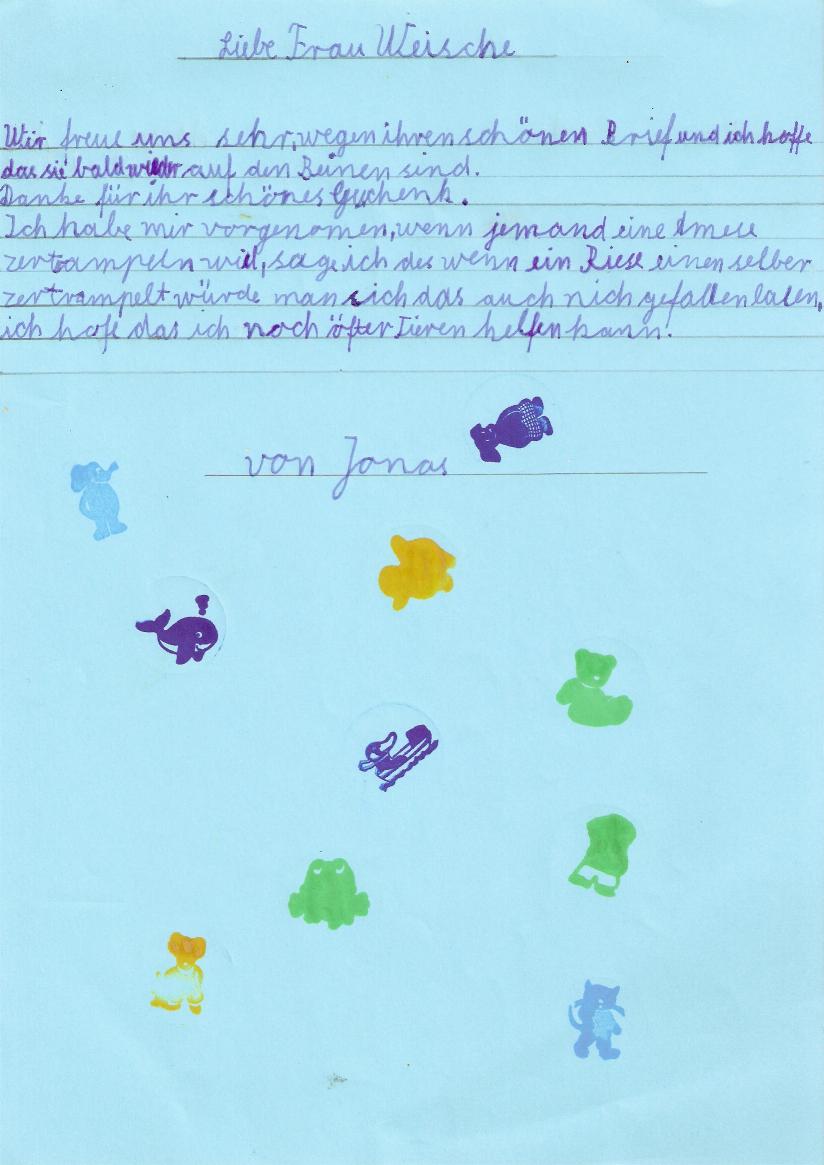 Liebe Frau Weische
Wir freue uns sehr, wegen ihren schönen Brief und ich hoffe
das sie bald wieder auf den Beinen sind.
Danke für ihr schönes Geschenk.
Ich habe mir vorgenomen, wenn jemand eine Amese
zertrampeln wiel, sage ich des wenn ein Riese einen selber
zertrampelt würde man sich das auch nich gefallen lasen,
ich hofe das ich noch öfter Tieren helfen kann.
von Jonas